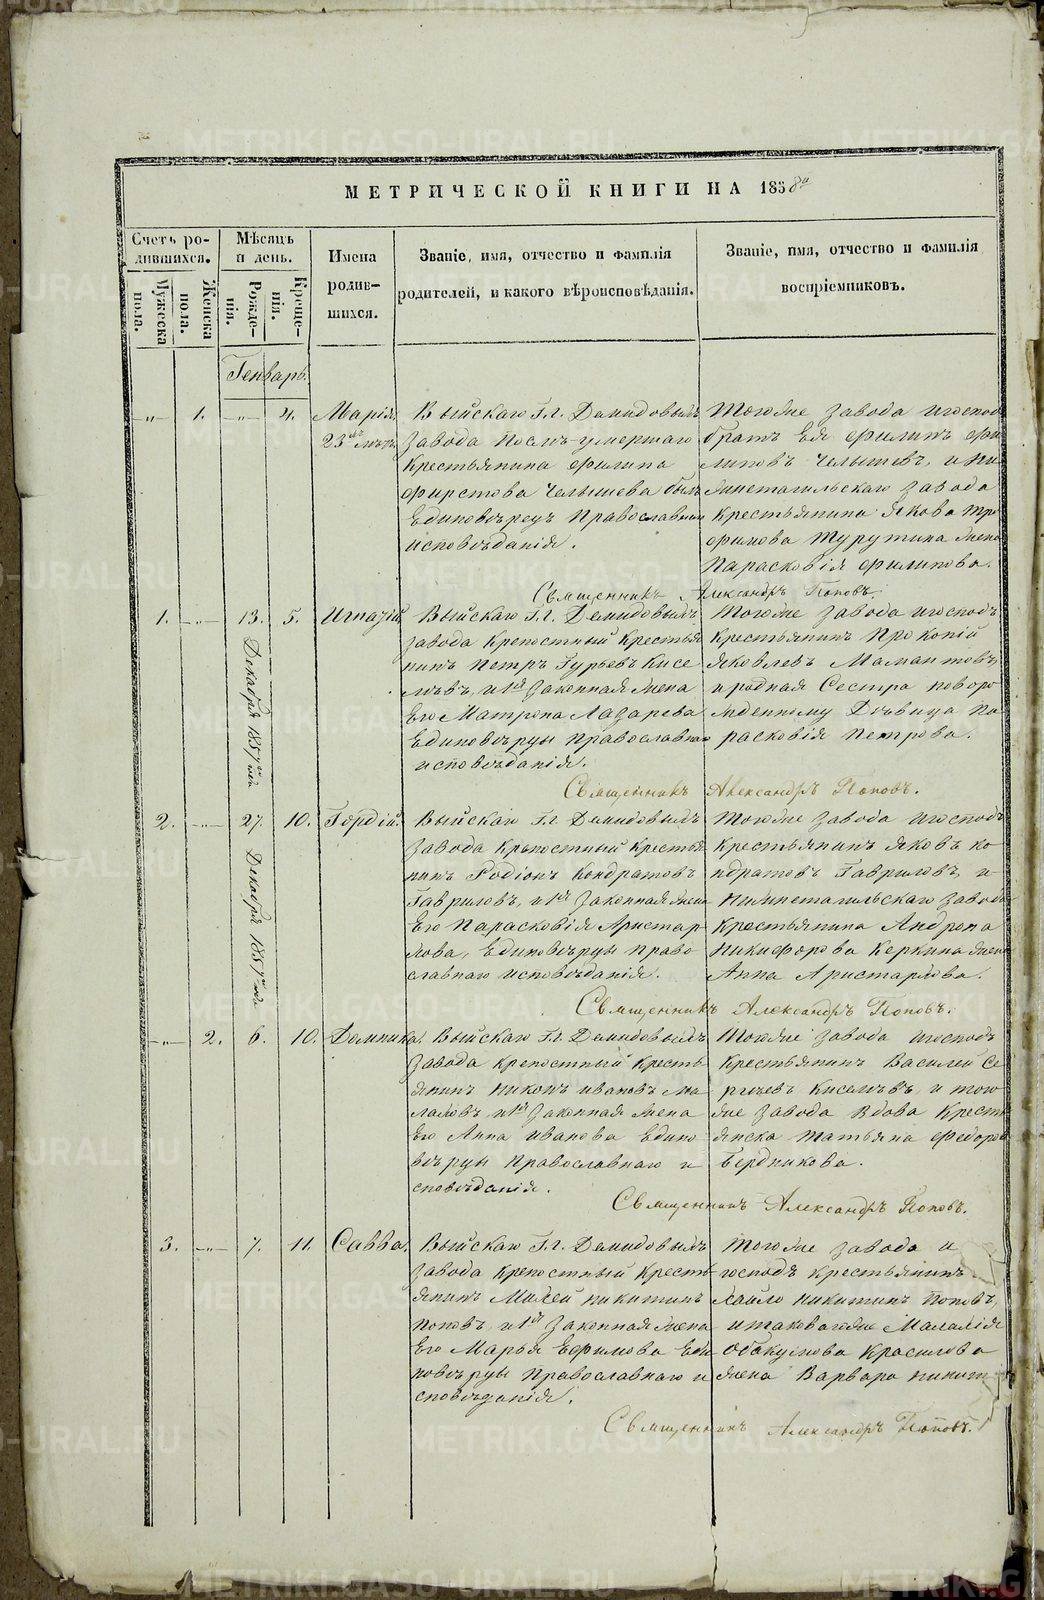 МЕТРИЧЕСКОЙ КНИГИ НА 1858й
Счетъ ро-
дившихся.
Мужеска
пола.
Женска
пола.
Мѣсяцъ
и день.
Рожде-
нія.
Креще-
нія.
Имена
родив-
шихся.
Званіе, имя, отчество и фамилія
родителей, и какого вѣроисповѣданія.
Званіе, имя, отчество и фамилія
воспріемниковъ.
Генварь.
-„- 1. -„- 4. Марія
23
Выйскаго Г.г. Демидовыхъ
завода послѣ умершаго
крестьянина Филипа
Фирстова Челышева былъ
Единовѣрецъ Православнаго
исповѣданія.
Тогоже завода и господ
братъ Ея Филипъ Фи
липовъ Челышевъ, и Ни
жнетагильскаго завода
крестьянина Якова Тро
фимова Турутина жена
Парасковія Филипова.
Священникъ Александръ Поповъ.
1. -„- 13. 5. Игнатій
Декабря 1857
Выйскаго Г.г. Демидовыхъ
завода крепостный крестья
нинъ Петръ Гурьевъ Кисе
левъ, и законная жена
Его Матрона Лазарева
Единовѣрцы православнаго
исповѣданія.
Тогоже завода и господъ
крестьянинъ Прокопій
Яковлевъ Мамантовъ,
и родная Сестра новоро
жденному Дѣвица Па
расковія Петрова.
Священникъ Александръ Поповъ.
2. -„- 27. 10. Гордій.
Декабря 1857
Выйскаго Г.г. Демидовыхъ
завода крѣпостный крестья
нинъ Родіонъ Кондратовъ
Гавриловъ, и законная жена
Его Парасковія Аристар
хова, Единовѣрцы право
славнаго исповѣданія.
Тогоже завода и господъ
крестьянинъ Яковъ Ко
ндратовъ Гавриловъ, и
Нижнетагильскаго завода
крестьянина Андрона
Никифорова Керкина жена
Анна Аристархова.
Священникъ Александръ Поповъ.
-„- 2. 6. 10. Домника.
Выйскаго Г.г. Демидовыхъ
завода крепостный кресть
янинъ Никонъ Ивановъ Ма
лаховъ, и законная жена
Его Анна Иванова Едино
вѣрцы Православнаго и
сповѣданія.
Тогоже завода и господъ
крестьянинъ Василей Се
ргиевъ Киселевъ, и того
же завода вдова кресть
янска Татьяна Федоров
Бердникова.
Священникъ Александръ Поповъ.
3. -„- 7. 11. Савва.
Выйскаго Г.г. Демидовыхъ
завода крепостный кресть
янинъ Михей Никитинъ
Поповъ, и законная жена
Его Марья Ефимова Еди
новѣрцы Православнаго и
сповѣданія.
Тогоже завода и
господъ крестьянинъ
Никитинъ Поповъ,
и таковагоже Малахія
Абакумова Красилова
жена Варвара Никит
Священникъ Александръ Поповъ.
METRIKI.GASO-URAL.RU